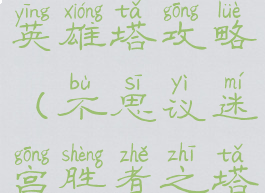 yīng xióng tǎ gōng lüè
英雄塔攻略
bù sī yì mí
（不思议迷
gōng shèng zhě zhī tǎ
宫胜者之塔